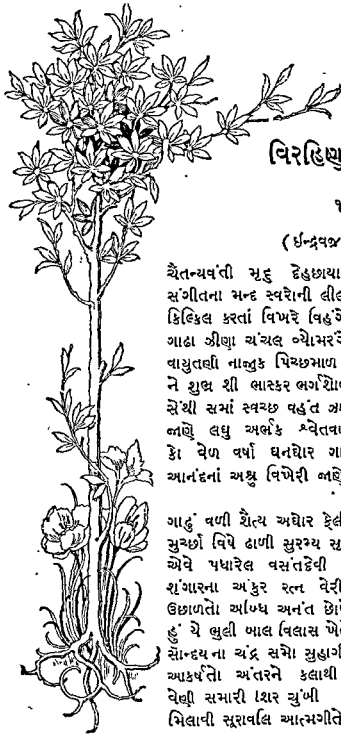 વિરહિણ
૧
(ઇન્દ્રવજ
ચૈતન્યવંતી મૃદુ દેહછાયા
સંગીતના મન્દ સ્વરોની લીલ
કિલ્કિલ કરતાં વિખરે વિહંગ
ગાઢા ઝીણા ચંચલ વ્યોમરં
વાયુતણી નાજુક પિચ્છમાળ
ને શુભ્ર શી ભાસ્કર ભર્ગશો
સેંથી સમાં સ્વચ્છ વહંત ઝ
જાણે લઘુ અર્ભક શ્વેતવ
કો વેળ વર્ષા ઘનઘોર ગા
આનંદનાં અશ્રુ વિખેરી જાણે
ગાઢું વળી શૈત્ય અઘોર ફેલ
સુર્ચ્છા વિષે ઢાળી સુરમ્ય સૃ
એવે પધારેલ વસંતદેવી
શૃંગારના અંકુર રત્ન વેરી
ઉછાળતો અબ્ધિ અનંત છો
હું યે ભુલી બાલ વિલાસ ખે
સૌન્દર્યના ચંદ્ર સમો સુહાગ
આકર્ષતો અંતરને કલાથી
વેણી સમારી શિર ચુંબી
મિલાવી સૂરાવલિ આત્મગીતે